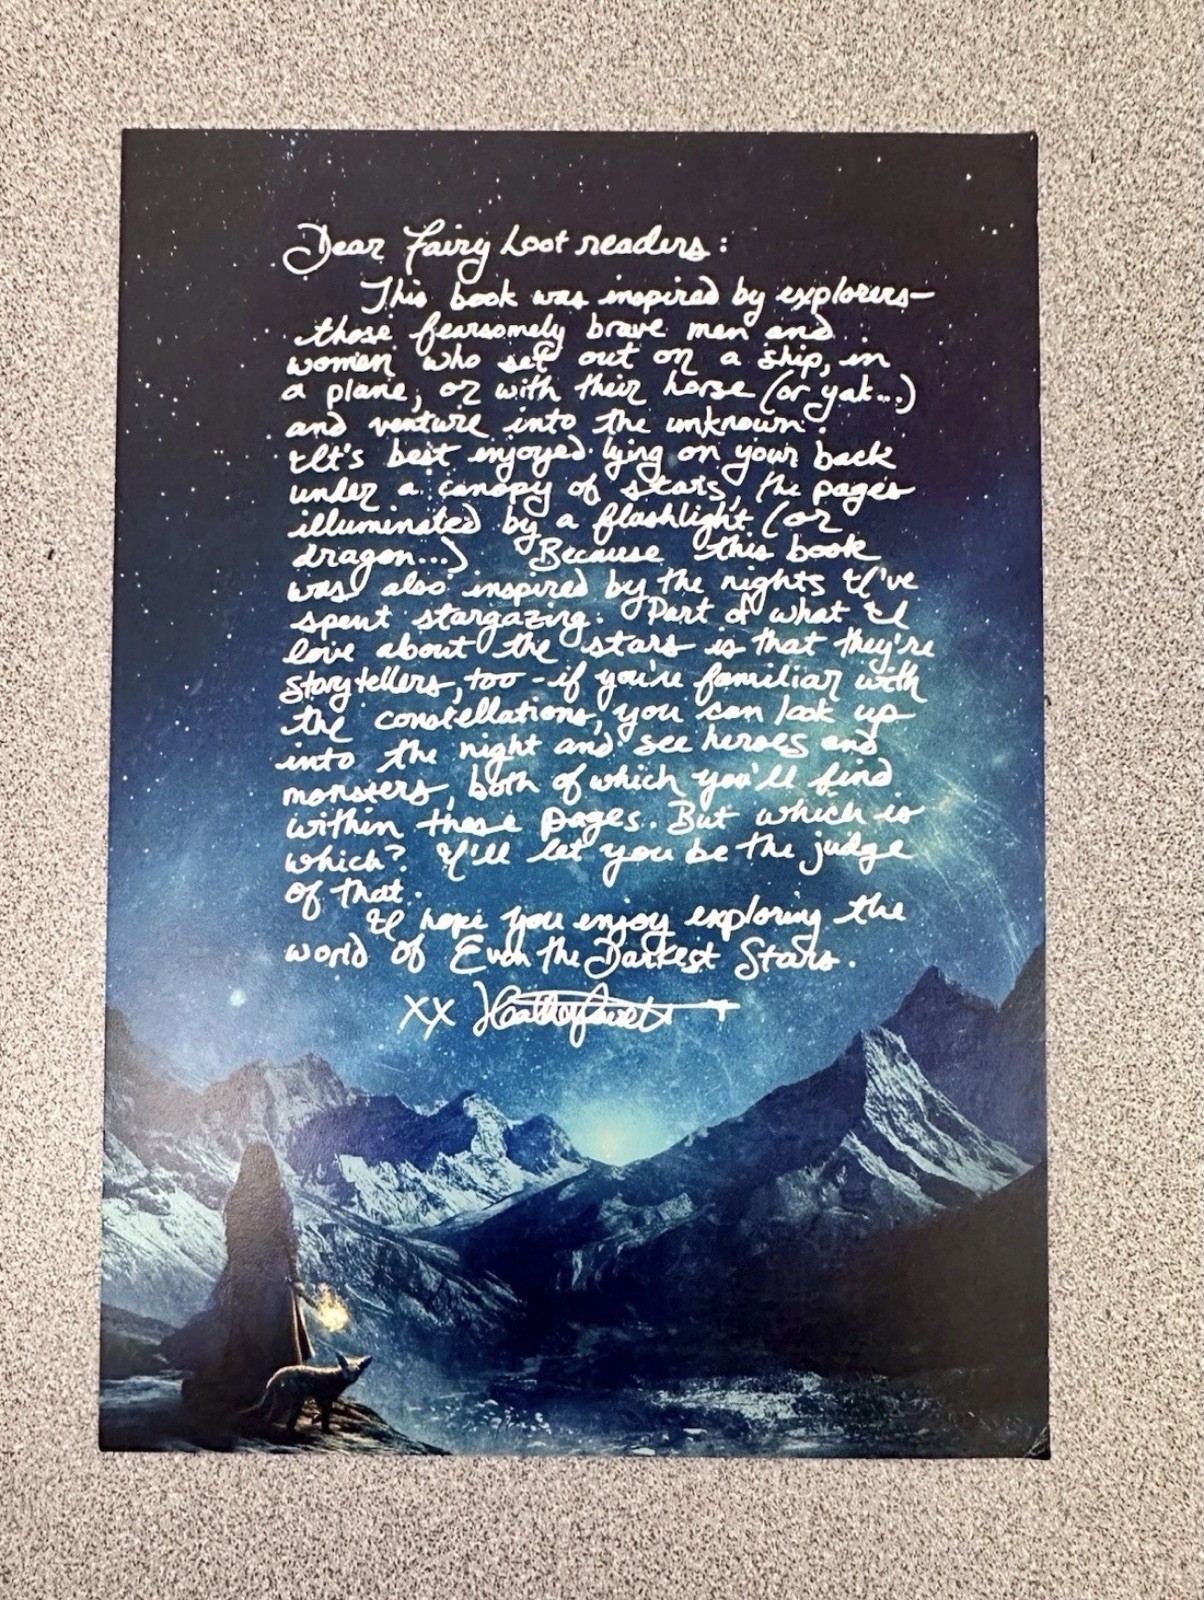 Dear Fairy Loot readers:
This book was inspired by explorers—
those fearsomely brave men and
women who set out on a ship, in
a plane, or with their horse (or yak...)
and venture into the unknown.
It's best enjoyed lying on your back
under a canopy of stars, the pages
illuminated by a flashlight (or
dragon...) Because this book
was also inspired by the nights I've
spent stargazing. Part of what I
love about the stars is that they're
storytellers, too - if you're familiar with
the constellations, you can look up
into the night and see heroes and
monsters, both of which you'll find
within these pages. But which is
which? I'll let you be the judge
of that.
I hope you enjoy exploring the
world of Even the Darkest Stars.
XX Heather Fawcett